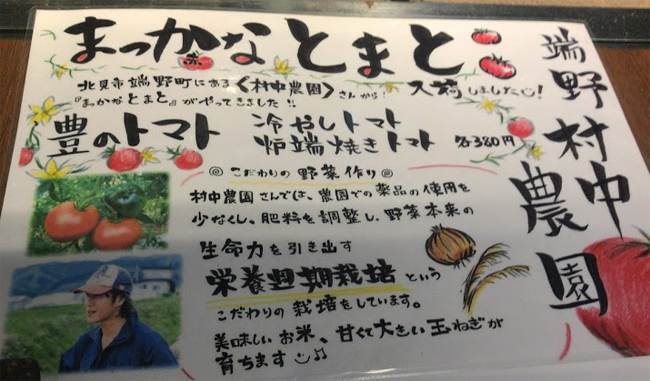 まっかなとまと
北見市端野町にある〈村中農園〉さんから! 入荷しました!
『まっかなとまと』がやってきました!!
豊のトマト
冷やしトマト
炉端焼きトマト 各380円
端野村中農園
◎こだわりの野菜作り◎
村中農園さんでは、農園での薬品の使用を
少なくし、肥料を調整し、野菜本来の
生命力を引き出す
栄養週期栽培という
こだわりの栽培をしています。
美味しいお米、甘くて大きい玉ねぎが
育ちます♫